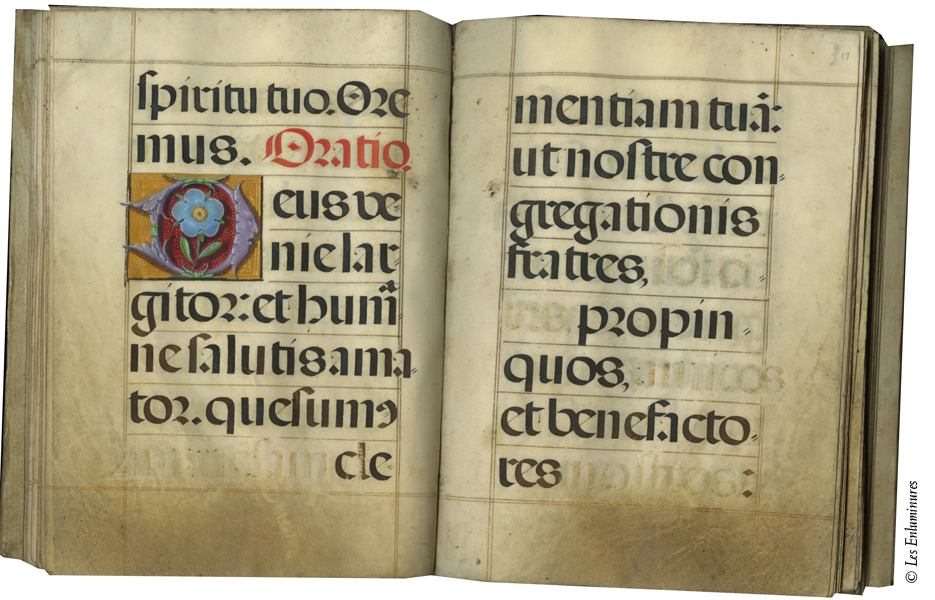 spiritu tuo. Ore
mus. Oratio.
Deus ve
nie lar
gitor: et humã
ne salutis ama
tor. quesumꝰ
cle
17
mentiam tuã:
ut nostre con
gregationis
fratres,
propin
quos,
et benefacto
res :
© Les Enluminures